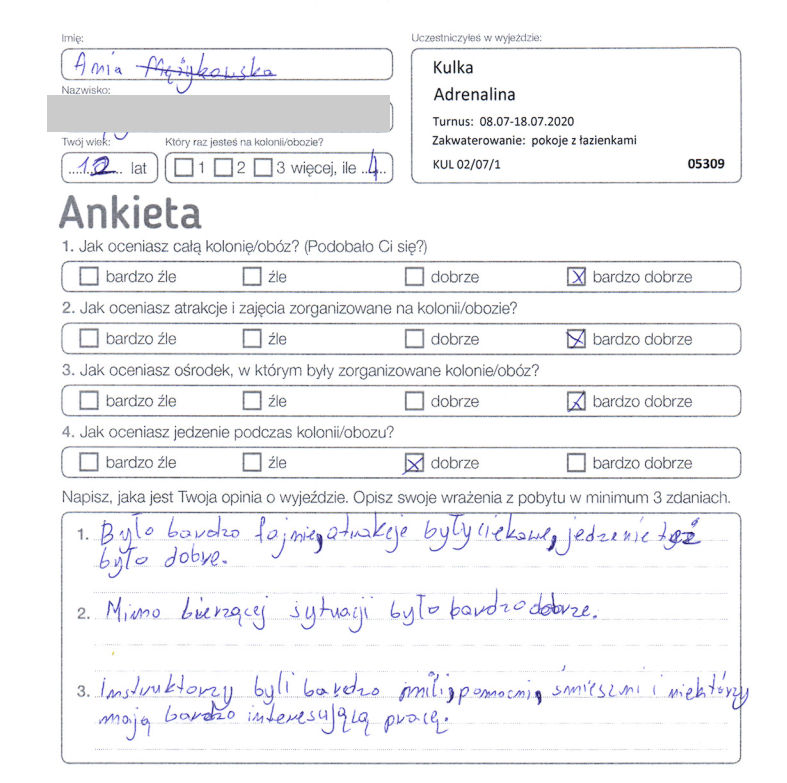 Imię:
Ania
Nazwisko:
Twój wiek:
12 lat
Który raz jesteś na kolonii/obozie?
1 2 3 więcej, ile 4
Uczestniczyłeś w wyjeździe:
Kulka
Adrenalina
Turnus: 08.07-18.07.2020
Zakwaterowanie: pokoje z łazienkami
KUL 02/07/1 05309
Ankieta
1. Jak oceniasz całą kolonię/obóz? (Podobało Ci się?)
bardzo źle źle dobrze bardzo dobrze
2. Jak oceniasz atrakcje i zajęcia zorganizowane na kolonii/obozie?
bardzo źle źle dobrze bardzo dobrze
3. Jak oceniasz ośrodek, w którym były zorganizowane kolonie/obóz?
bardzo źle źle dobrze bardzo dobrze
4. Jak oceniasz jedzenie podczas kolonii/obozu?
bardzo źle źle dobrze bardzo dobrze
Napisz, jaka jest Twoja opinia o wyjeździe. Opisz swoje wrażenia z pobytu w minimum 3 zdaniach.
1. Było bardzo fajnie, atrakcje były ciekawe, jedzenie też
było dobre.
2. Mimo bierzącej sytuacji było bardzo dobrze.
3. Instruktorzy byli bardzo mili, pomocni, śmieszni i niektórzy
mają bardzo interesującą pracę.